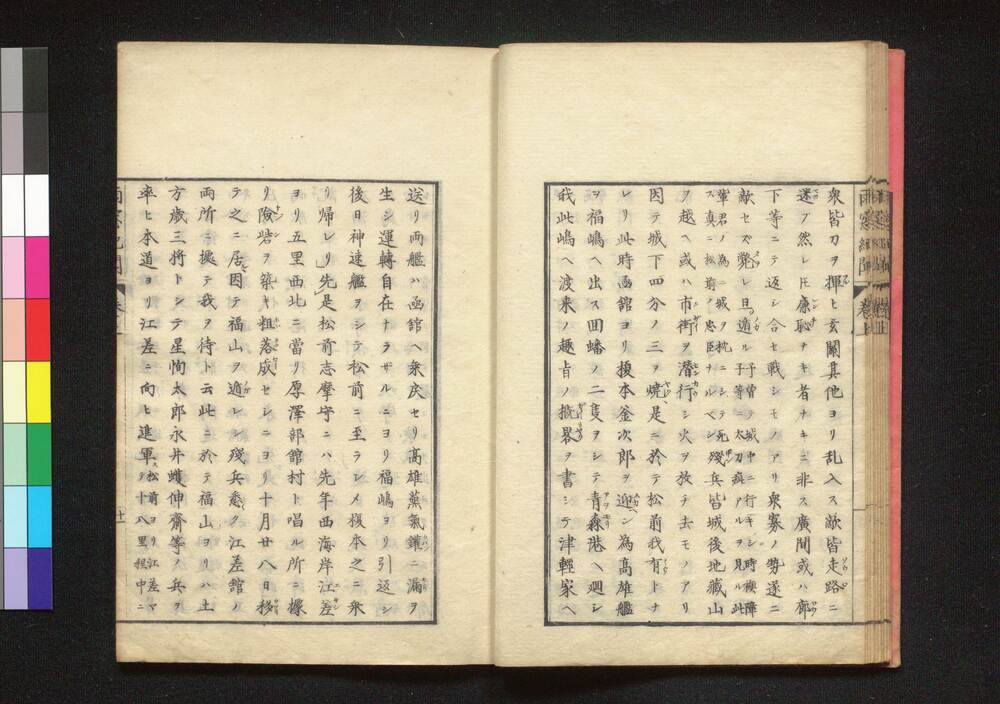 衆皆刀ヲ揮ヒ玄關其他ヨリ乱入ス敵皆走路ニ
迷フ然レ圧廉恥ナキ者ナキニ非ス廣間或ハ廊
下等ニテ返シ合セ戦シモノアリ衆寡ノ勢遂ニ
敵セズ斃レ旦遁ル予曽テ城中ニ行キシ時襖障子等ニ太刀痕アルヲ見ル此
輩君ノ為ニ城ヲ枕ニシテ死ス真ニ松前ノ忠臣ナルベシ残兵皆城後地藏山
ヲ越ヘ或ハ市街ヲ潜行シ火ヲ放チ去モノアリ
因テ城下四分ノ三ヲ焼是ニ於テ松前我有トナ
レリ此時函館ヨリ榎本釜次郎ヲ迎ン為高雄艦
ヲ福嶋ヘ出ス回・蟠ノ二隻ヲシテ青森港ヘ廻シ
我此嶋ヘ渡来ノ趣旨ノ概畧ヲ書シテ津輕家ヘ
送リ両艦ハ函館ヘ衆戻セリ高雄蒸氣鑵ニ漏ヲ
生シ運轉自在ナラザルニヨリ福嶋ヨリ引返シ
後日神速艦ヲシテ松前ニ至ラシメ榎本之ニ乗
リ帰レリ先是松前志摩守ニハ先年西海岸江差
ヨリ五里西北ニ當リ厚澤部館村ト唱ル所ニ據
リ險砦ヲ築キ粗落成セシニヨリ十月廿八日移
テ之ニ居因テ福山ヲ遁レシ残兵悉ク江差館ノ
両所ニ據テ我ヲ待ト云此ニ於テ福山ヨリハ土
方歳三将トシテ星恂太郎永井蠖伸齋等ノ兵ヲ
率ヒ本道ヨリ江差ニ向ヒ進軍ス松前ヨリ江差マテ十八里程中ニ